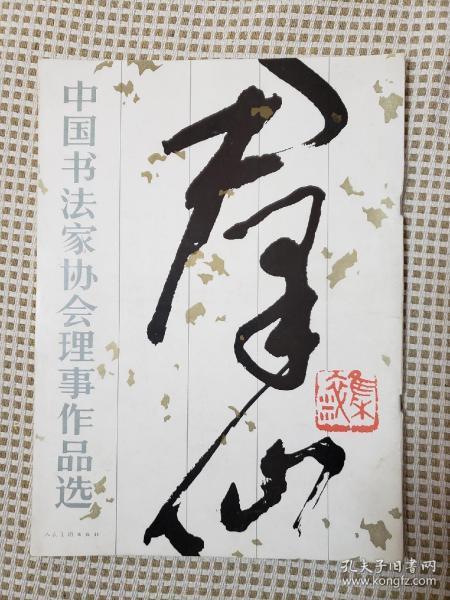 中国书法家协会理事作品选
羣仙
人民美术出版社
孔夫子旧书网
www.kongfz.com